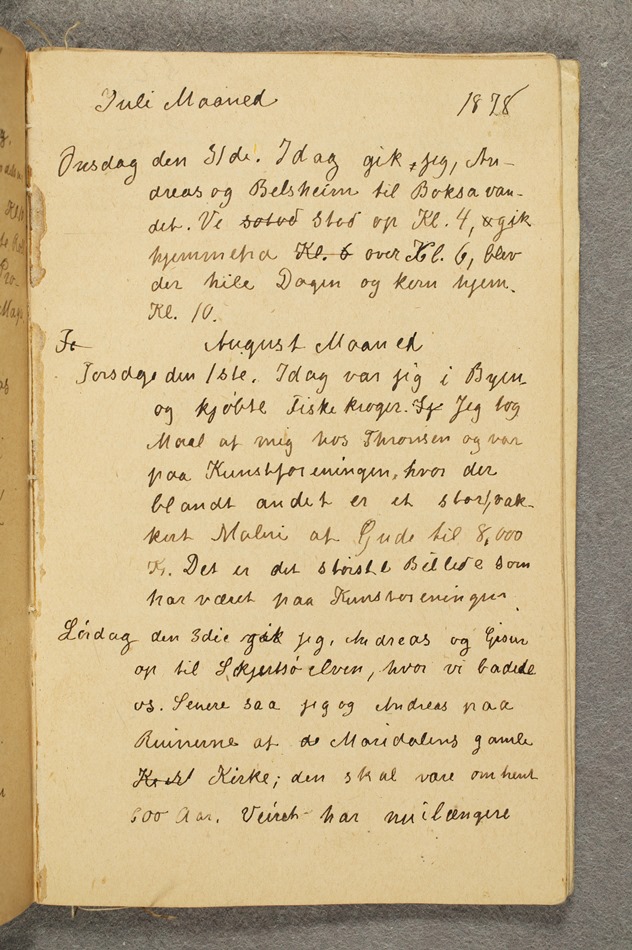 Juli Maaned 1878
Onsdag den 31de. Idag gik jeg, An-
dreas og Belsheim til Boksavan-
det. Vi stod op Kl. 4, gik
hjemmefra Kl. 6 over Kl. 6, blev
der hele Dagen og kom hjem.
Kl. 10.
To August Maaned
Torsdag den 1ste. Idag var jeg i Byen
og kjøbte Fiskekroger. Jeg tog
Maal af mig hos Thronsen og var
paa Kunstforeningen, hvor der
blandt andet er et stort, vak-
kert Maleri af Gude til 8,000
Kr. Det er det störste Billede som
har været paa Kunstforeningen.
Lördag den 3die gik jeg, Andreas og
op til Skjertsö elven, hvor vi badede
os. Senere saa jeg og Andreas paa
Ruinerne af de Maridalens gamle
Kirke; den skal være omhent
600 Aar. Veiret har nu i længere